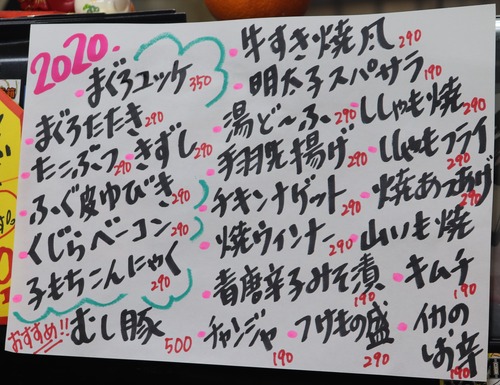 2020.
まぐろユッケ 350
まぐろたたき 290
たこぶつ 290 きずし 290
ふぐ皮ゆびき 290
くじらベーコン 290
子もちこんにゃく 290
おすすめ!! むし豚 500
牛すき焼風 290
明太子スパサラ 190
湯どーふ 290 ししゃも焼 290
手羽先揚げ 290 ししゃもフライ 290
チキンナゲット 290 焼あつあげ 290
焼ウィンナー 290 山いも焼 290
青唐辛子みそ漬 190 キムチ 190
チャンジャ 190 つけもの盛 290 イカのお辛 190